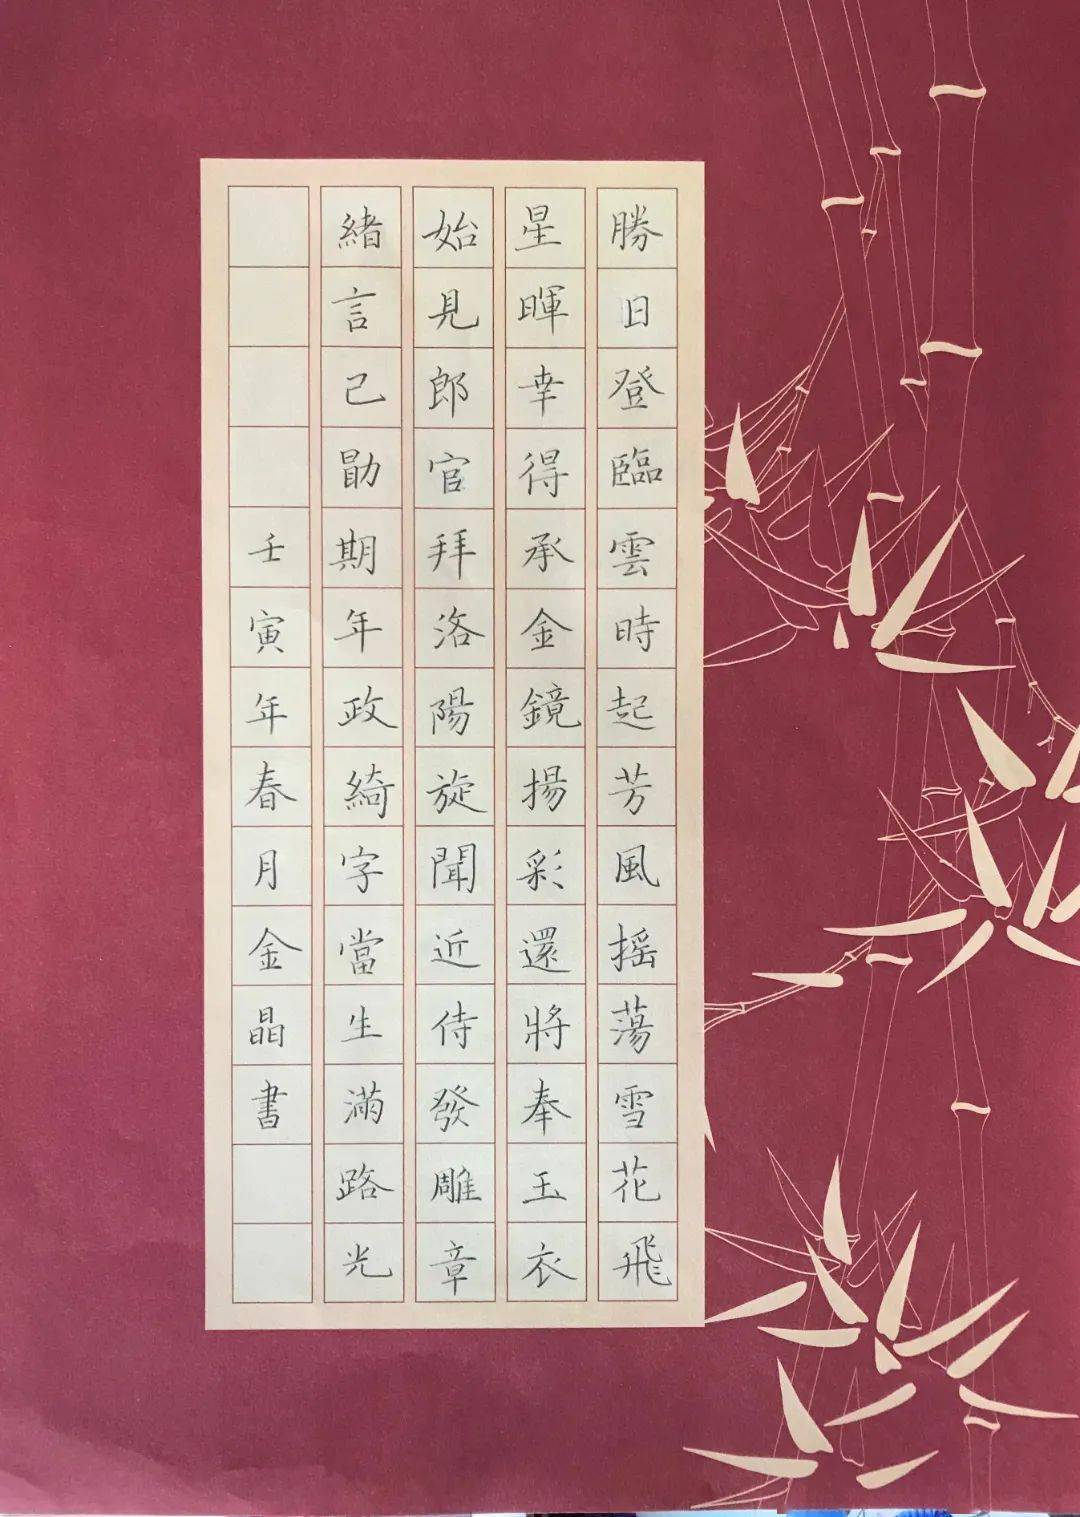 勝日登臨雲時起芳風搖蕩雪花飛
星暉幸得承金鏡揚彩還將奉玉衣
始見郎官拜洛陽旋聞近侍發雕章
緒言已勖期年政綺字當生滿路光
壬寅年春月金晶書